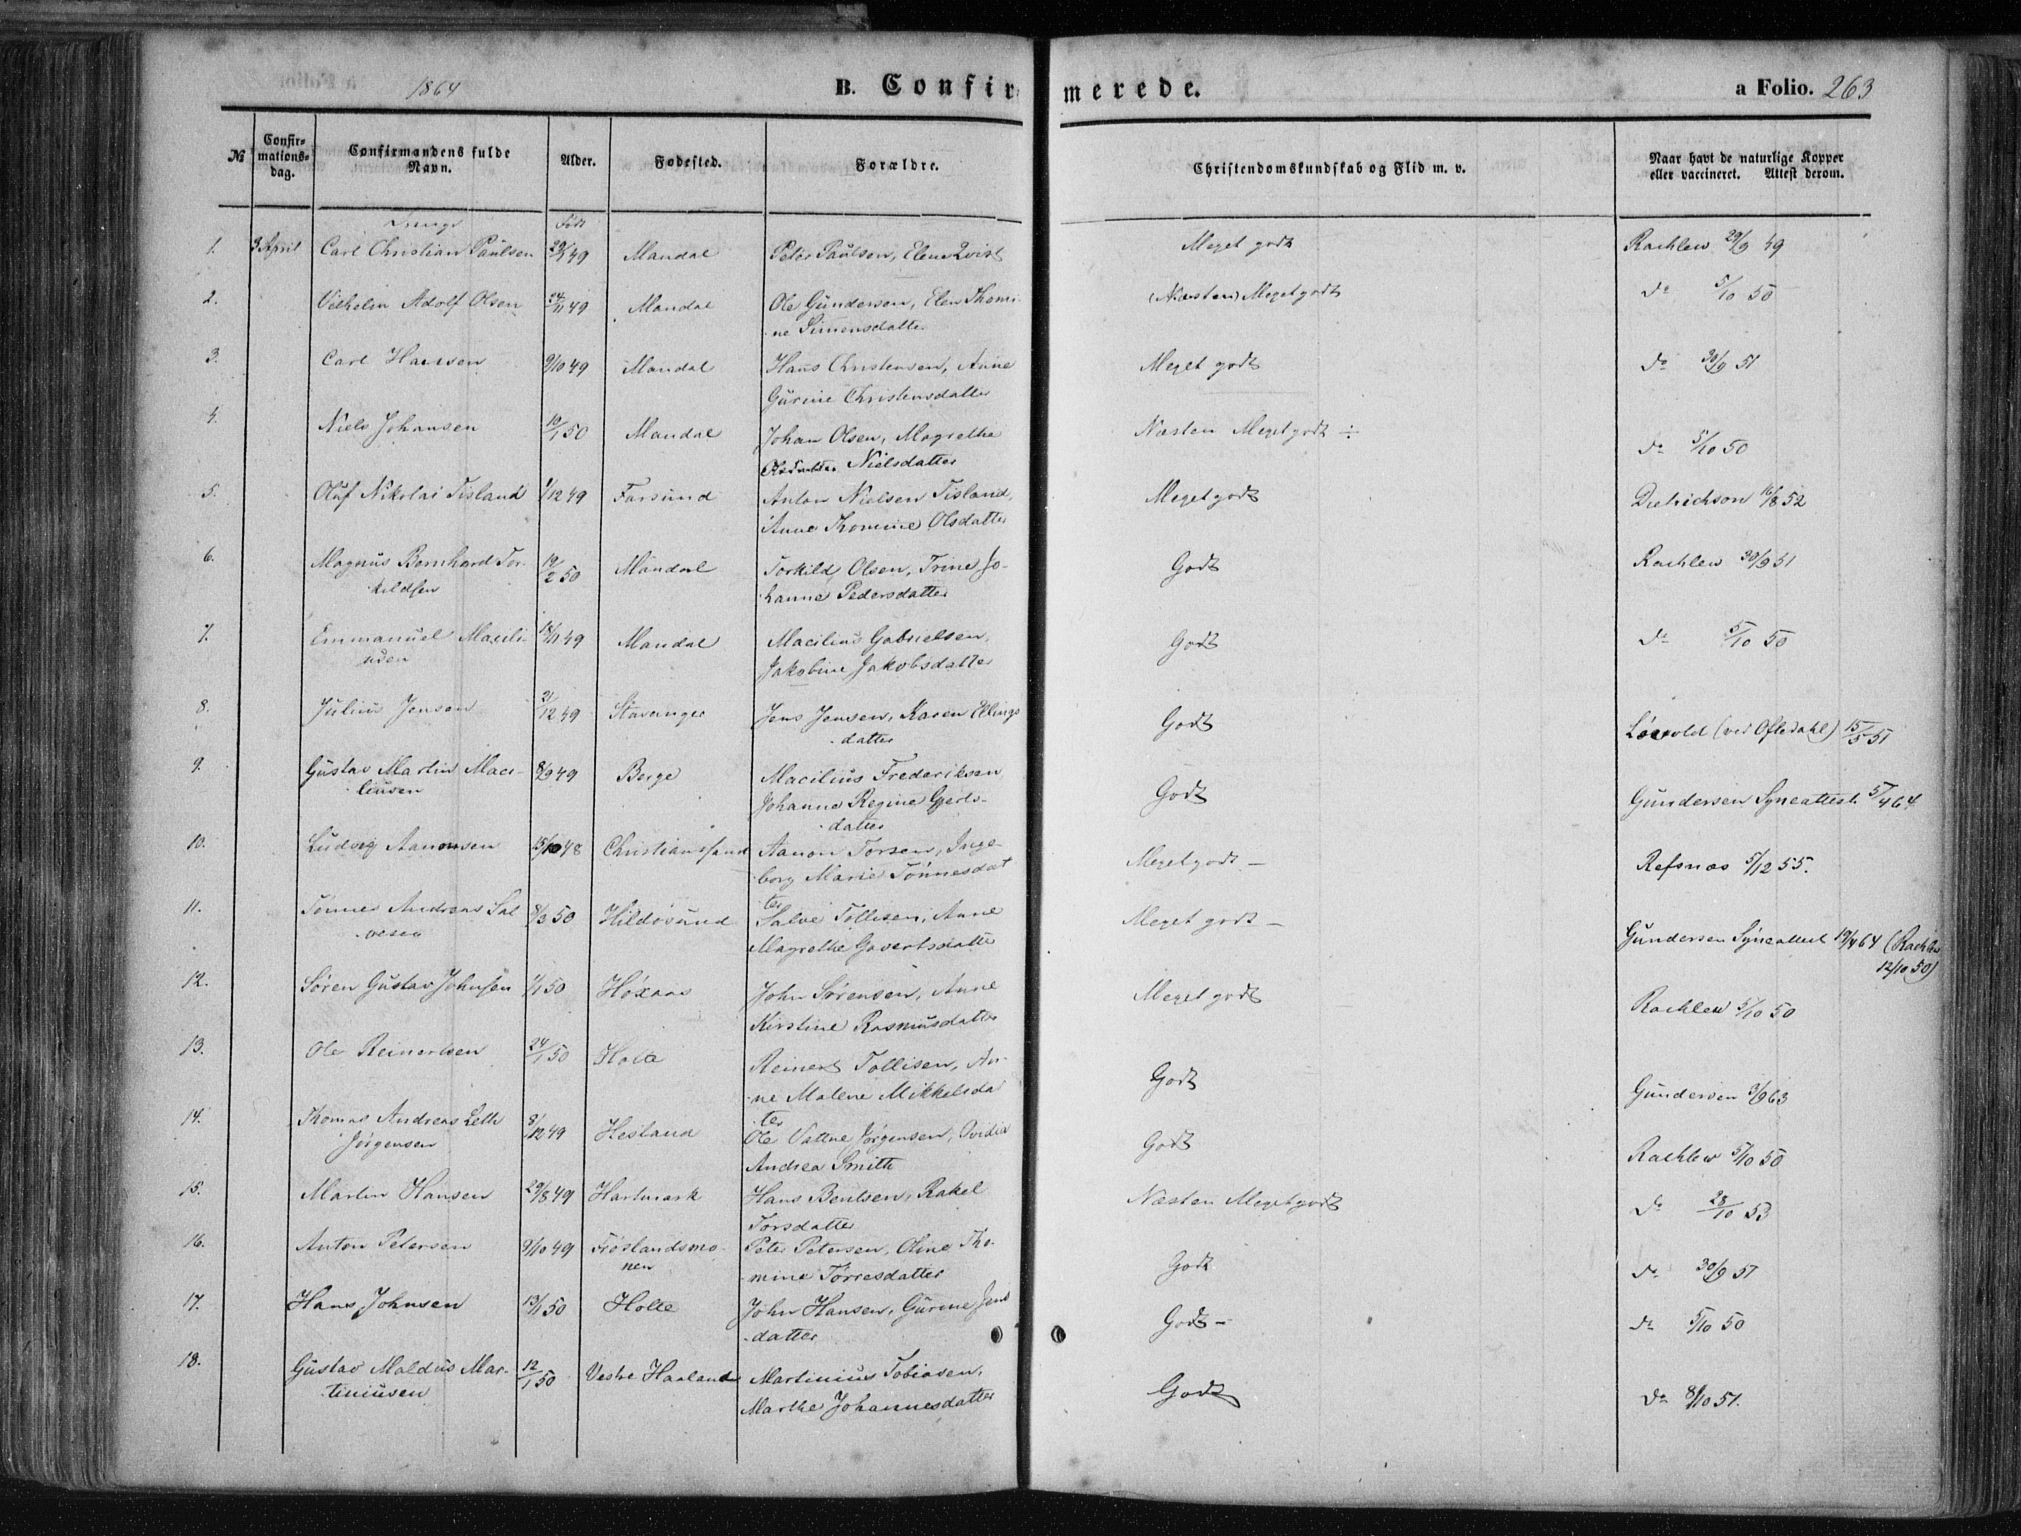 1864 B. Confirmerede. a Folio. 263
№ Confirmationsdag. Confirmandens fulde Navn. Alder. Fødested. Forældre. Christendomskundskab og Flid m. v. Naar havt de naturlige Kopper eller vaccineret. Attest derom.
Drenge Født
1. 3 April Carl Christian Paulsen 49 Mandal Peter Paulsen, Elen Qvist Meget godt Rachlew 29/9 49
2. Vilhelm Adolf Olsen 24/11 49 Mandal Ole Gundersen, Elen Thomi- (Næsten) Meget godt do 5/10 50
ne Simensdatter
3. Carl Hansen 9/10 49 Mandal Hans Christensen, Anne Meget godt do 30/9 51
Gurine Christensdatter
4. Niels Johansen 10/1 50 Mandal Johan Olsen, Magrethe Næsten Meget godt ÷ do 5/10 50
Nielsdatter
5. Oluf Nikolai Tisland 1/12 49 Farsund Anton Nielsen Tisland, Meget godt Dietrichson 16/8 52
Anne Thomine Olsdatter
6. Magnus Bernhard Tor- 19/2 50 Mandal Torkild Olsen, Trine Jo- Godt Rachlew 30/9 51
kildsen hanne Pedersdatter
7. Emmanuel Macili- 18/11 49 Mandal Macilius Gabrielsen, Godt do 5/10 50
usen Jakobine Jakobsdatter
8. Julius Jensen 21/12 49 Stavanger Jens Jensen, Karen Ellings Godt (ved Oftedahl) 15/5 51
datter
9. Gustav Martin Maci- 8/9 49 Berge Macilius Frederiksen Godt Gundersen Syneattest 5/4 64
liusen Johanne Regine Gjerts-
datter
10. Ludvig Aanonsen 15/10 48 Christianssand Aanon Torsen, Inge- Meget godt – Refsnæs 5/12 55.
borg Marie Tönnesdat
ter
11. Tönnes Andreas Sal 8/3 50 Hildøsund Salve Tollisen, Anne Meget godt – Gundersen Syneattest 19/4 64 (Rachlew
vesen Magrethe Govertsdatter 12/10 50)
12. Søren Gustav Johnsen 1/1 50 Høxaas John Sørensen, Anne Meget godt Rachlew 5/10 50
Kirstine Rasmusdatter
13. Ole Reinertsen 24/1 50 Holte Reinert Tollisen, An- Godt Gundersen 3/9 63
ne Malene Mikkelsda
ter
14. Thomas Andreas Leth 8/12 49 Hesland Ole Vattne Jørgensen, Ovidia Godt Rachlew 5/10 50
Jørgensen Andrea Smith
15. Martin Hansen 29/8 49 Hartmark Hans Bentsen, Rakel Næsten Meget godt do 28/10 53
Torsdatter
16. Anton Petersen 9/10 49 Frøslandsmo- Peter Petersen, Oline Tho- Godt do 30/9 51
nen mine Tørresdatter
17. Hans Johnsen 13/1 50 Holte John Hansen, Gurine Jens Godt – do 5/10 50
datter
18. Gustav Maldus Mar- 12/1 50 Vestre Haaland Martinius Tobiasen, Godt do 8/10 51.
tiniusen Marthe Johannesdatter